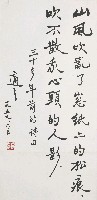 山風吹亂了窗紙上的松痕，
吹不散我心頭的人影。
三十多年前的詩句
適之